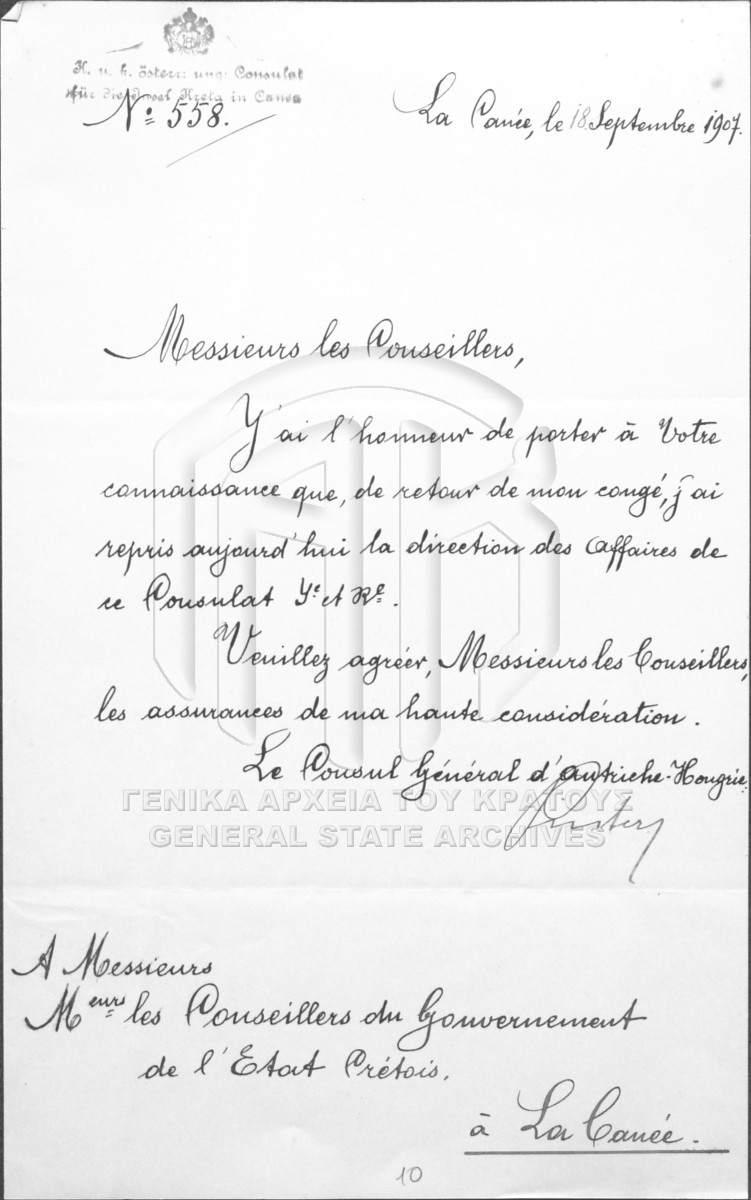 K. u. k. österr: ung: Consulat
für die Insel Kreta in Canea
No 558.
La Canée, le 18 Septembre 1907.
Messieurs les Conseillers,
J'ai l'honneur de porter à Votre
connaissance que, de retour de mon congé, j'ai
repris aujourd'hui la direction des affaires de
ce Consulat Il et Rl.
Veuillez agréer, Messieurs les Conseillers,
les assurances de ma haute considération.
Le Consul Général d'Autriche-Hongrie
ΓΕΝΙΚΑ ΑΡΧΕΙΑ ΤΟΥ ΚΡΑΤΟΥΣ
GENERAL STATE ARCHIVES
A Messieurs
Meurs les Conseillers du Gouvernement
de l'Etat Crétois.
à La Canée.
10